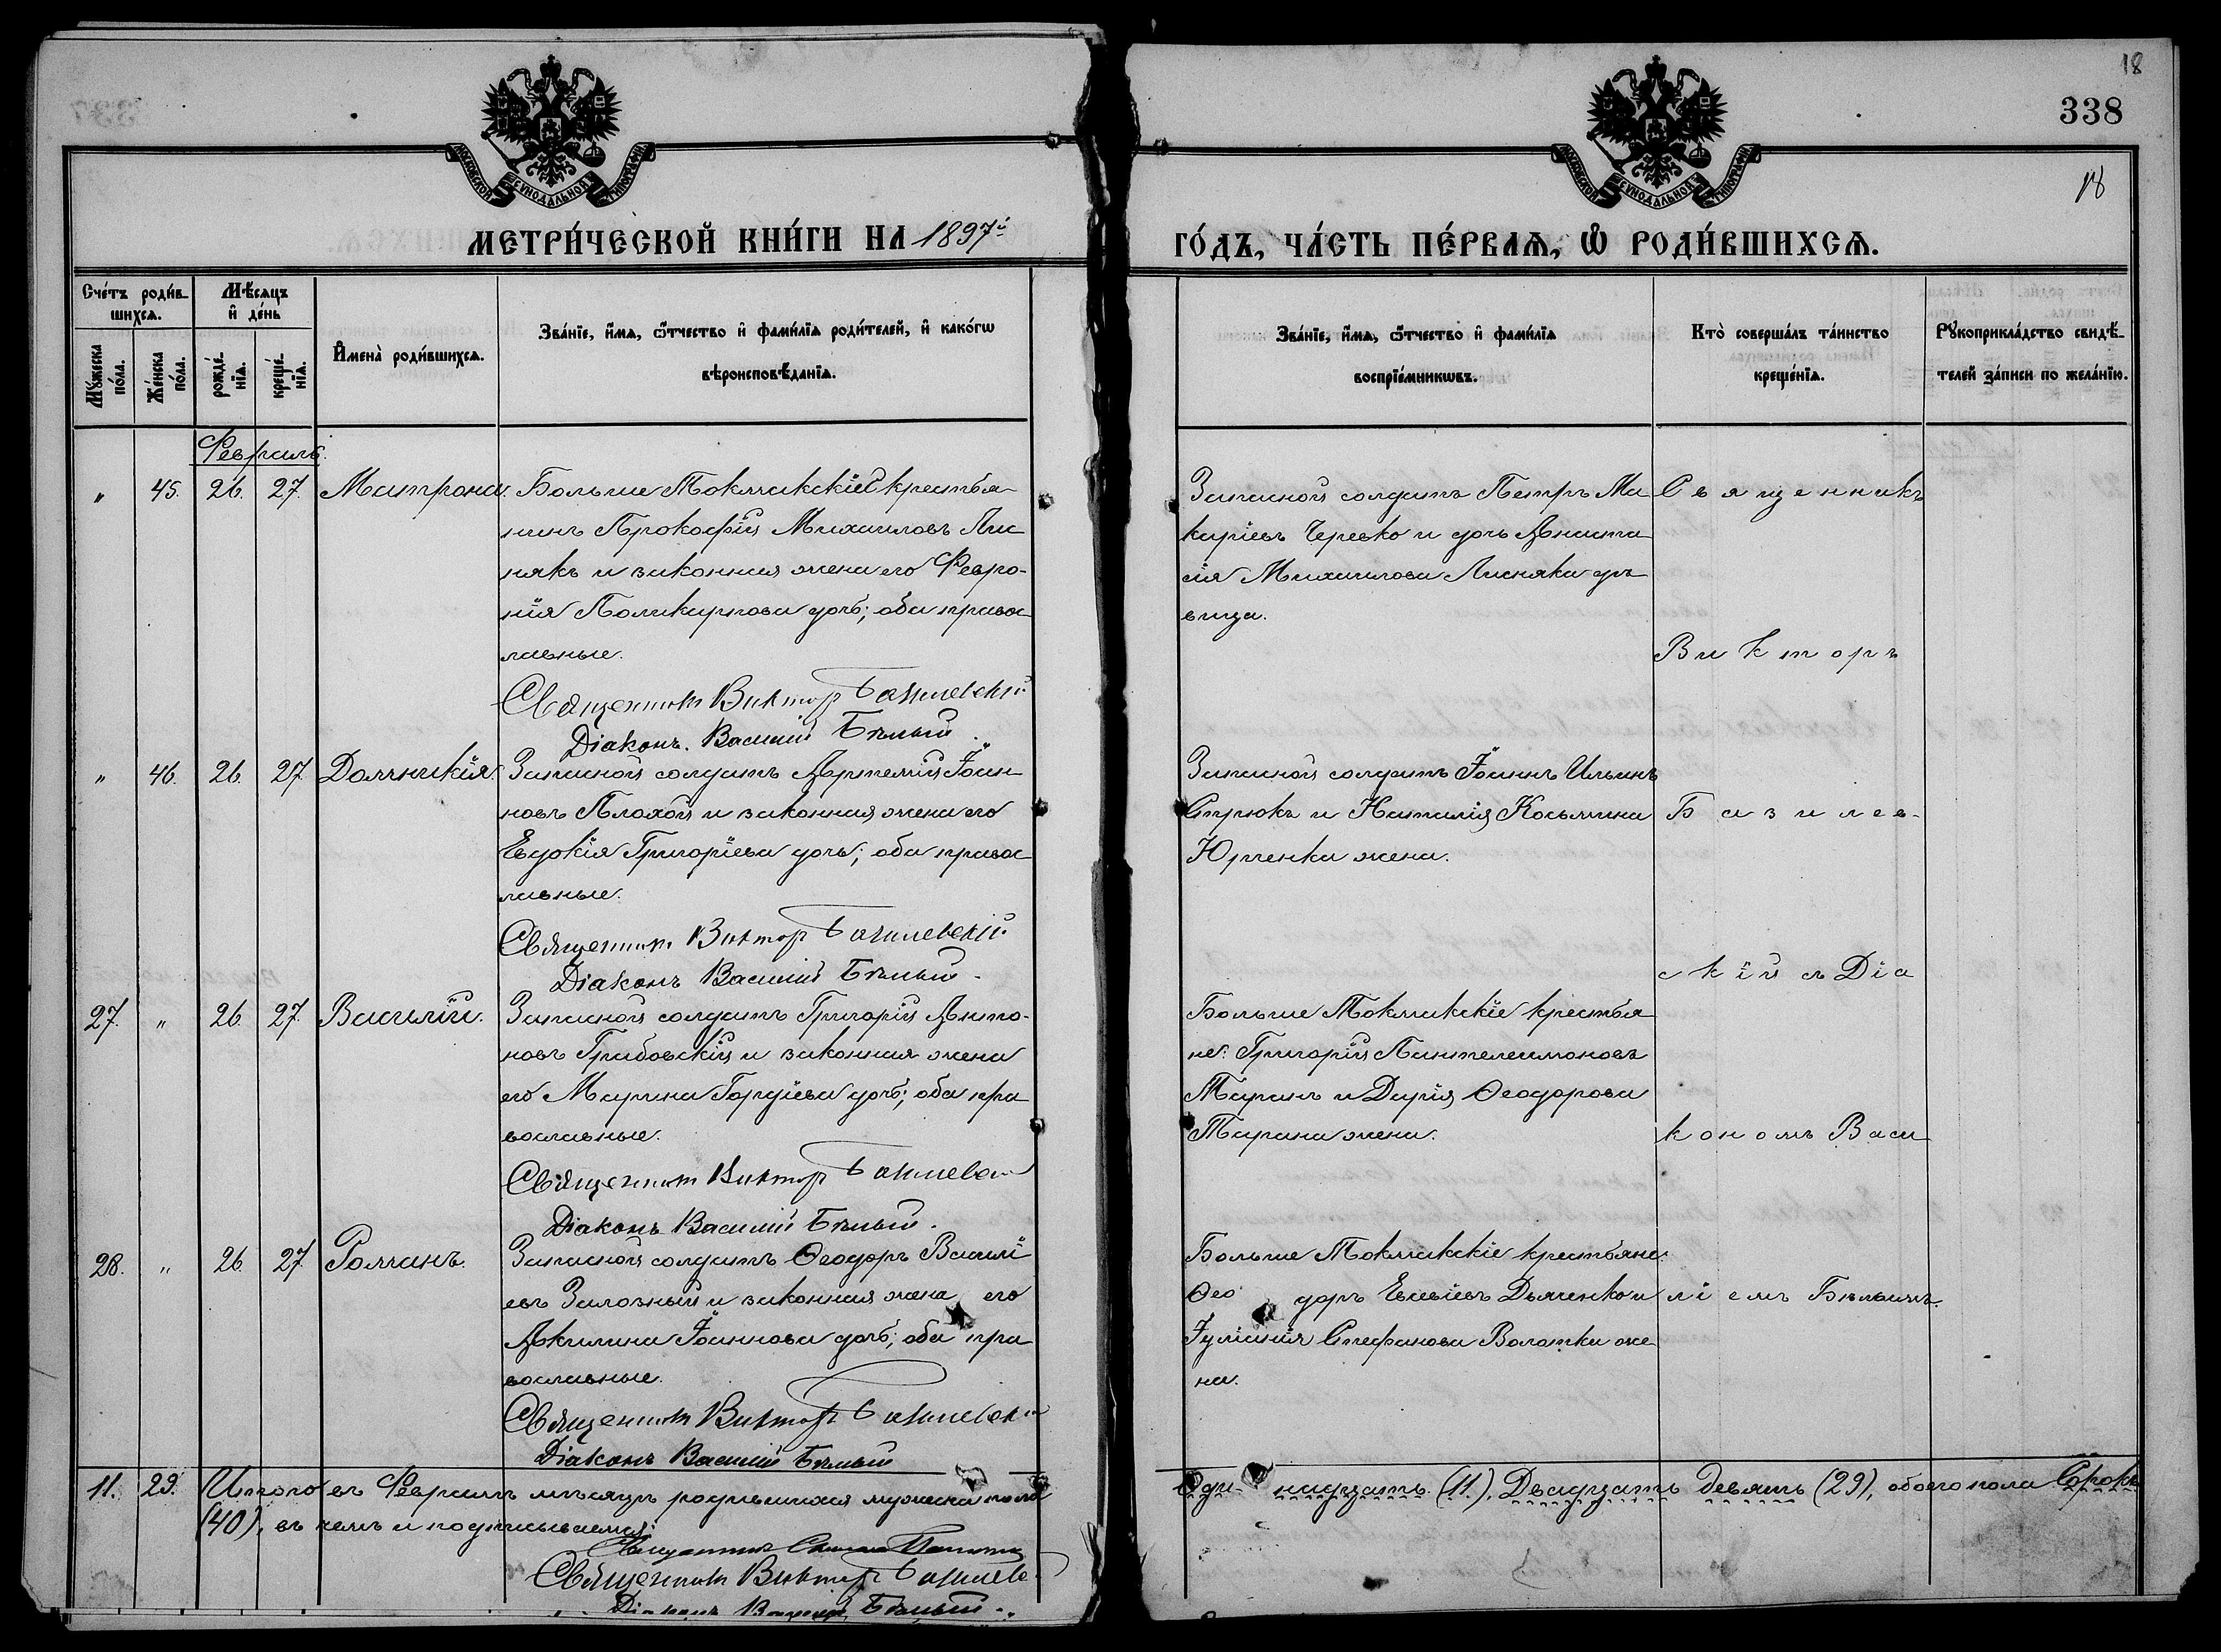 18
338
18
МОСКОВСКОЙ СѴНОДАЛЬНОЙ ТИПОГРАФІИ
МОСКОВСКОЙ СѴНОДАЛЬНОЙ ТИПОГРАФІИ
МЕТРИ́ЧЕСКОЙ КНИ́ГИ НА 1897й
ГО́ДЪ, ЧА́СТЬ ПЕ́РВАѦ, Ѡ҆ РОДИ́ВШИХСѦ.
Сче́тъ роди́в-
шихсѧ.
Мꙋ́жеска по́ла.
Же́нска по́ла.
Мѣ́сѧцъ
и҆ де́нь
рожде́-нїѧ.
креще́-нїѧ.
И҆мена̀ роди́вшихсѧ.
Зва́нїе, и҆́мѧ, ѻ҆́тчество и҆ фами́лїѧ роди́телей, и҆ како́гѡ
вѣроисповѣ́данїѧ.
Зва́нїе, и҆́мѧ, ѻ҆́тчество и҆ фами́лїѧ
воспрїе́мникѡвъ.
Кто̀ соверша́лъ та́инство
креще́нїѧ.
Рꙋкоприкла́дство свидѣ́-
телей за́писи по жела́нїю.
Февраль.
" 45. 26. 27. Матрона. Больше Токмакскій крестья-
нинъ Прокофій Михаиловъ Лис
някъ и законная жена его Февро-
нія Поликарпова дочь; оба правос
лавные.
Священникъ Викторъ Базилевскій
Діаконъ Василій Бѣлый.
Запасной солдатъ Петръ Ма
каріевъ Черевко и дочь Анаста
сія Михаилова Лисняка дѣ
вица.
Священникъ
Викторъ
" 46. 26. 27. Домникія. Запасной солдатъ Артемій Іоан
новъ Плохой и законная жена его
Евдокія Григоріева дочь; оба правос
лавные.
Священникъ Викторъ Базилевскій
Діаконъ Василій Бѣлый.
Запасной солдатъ Іоаннъ Ильинъ
Стрюкъ и Наталія Косьмина
Юрченка жена.
Базилев-
скій съ Діа
27. " 26. 27. Василій. Запасной солдатъ Григорій Анто-
новъ Грибовскій и законная жена
его Марина Гордіева дочь; оба пра
вославные.
Священникъ Викторъ Базилевск
Діаконъ Василій Бѣлый.
Больше Токмакскіе крестья
не: Григорій Пантелеимоновъ
Таранъ и Дарія Ѳеодорова
Тарана жена.
кономъ Васи
28. " 26. 27. Романъ. Запасной солдатъ Ѳеодоръ Василі
евъ Заложный и законная жена его
Акилина Іоаннова дочь; оба пра
вославные.
Священникъ Викторъ Базилевскій
Діаконъ Василій Бѣлый
Больше Токмакскіе крестьяне:
Ѳео доръ Евсѣевъ Дьяченко и
Іуліанія Стефанова Волотка же
на.
ліемъ Бѣлымъ.
11. 29. Итого въ Февралѣ мѣсяцѣ родившихся мужеска пола
Оди- надцать (11), Двадцать девять (29), обоего пола Сорокъ
(40), въ чемъ и подписываемся:
Священникъ
Священникъ Викторъ Базилевс
Діаконъ Василій Бѣлый.